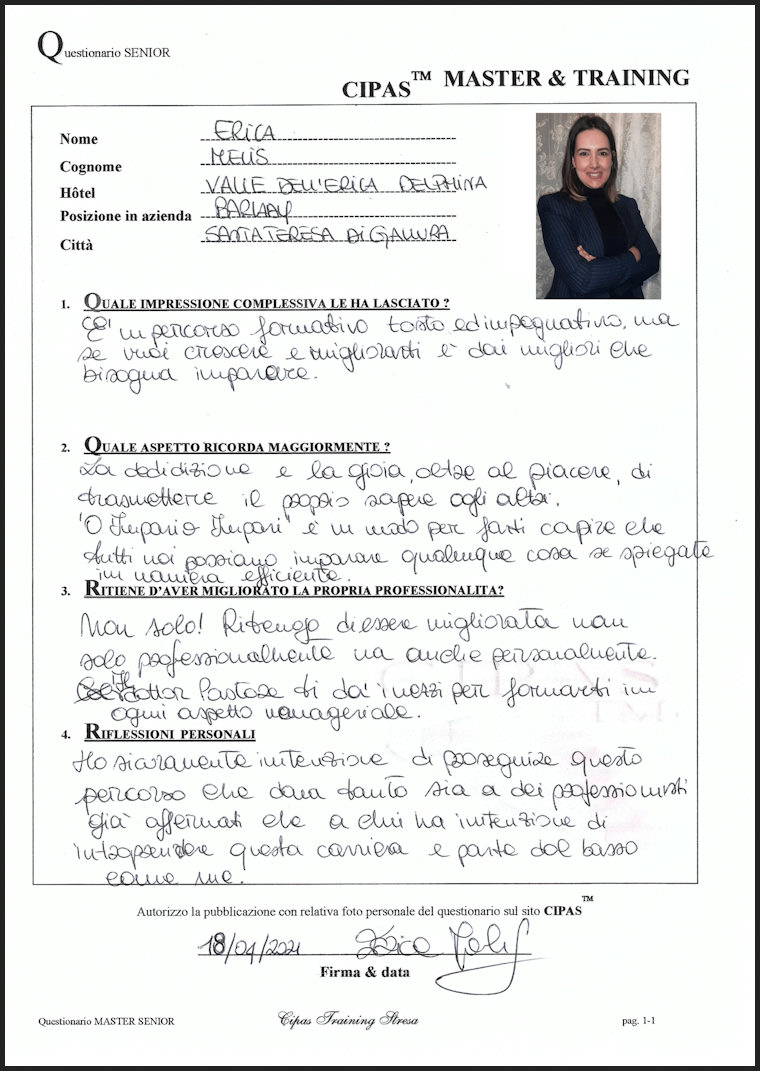 Questionario SENIOR
CIPAS™ MASTER & TRAINING
Nome ERICA
Cognome MELIS
Hôtel VALLE DELL'ERICA DELPHINA
Posizione in azienda BARLADY
Città SANTA TERESA DI GALLURA
1. QUALE IMPRESSIONE COMPLESSIVA LE HA LASCIATO ?
E' un percorso formativo tosto ed impegnativo, ma
se vuoi crescere e migliorarti è dai migliori che
bisogna imparare.
2. QUALE ASPETTO RICORDA MAGGIORMENTE ?
La dedidizione e la gioia, oltre al piacere, di
trasmettere il proprio sapere agli altri.
'O Imparo Impari' è un modo per farti capire che
tutti noi possiamo imparare qualunque cosa se spiegate
in maniera efficiente.
3. RITIENE D'AVER MIGLIORATO LA PROPRIA PROFESSIONALITA?
Non solo! Ritengo di essere migliorata non
solo professionalmente ma anche personalmente.
Il Dottor Pastore ti da' i mezzi per formarti in
ogni aspetto manageriale.
4. RIFLESSIONI PERSONALI
Ho sicuramente intenzione di proseguire questo
percorso che dara tanto sia a dei professionisti
già affermati che a chi ha intenzione di
intraprendere questa carriera e parte dal basso
come me.
Autorizzo la pubblicazione con relativa foto personale del questionario sul sito CIPAS™
18/04/2021 Erica Melis
Firma & data
Questionario MASTER SENIOR Cipas Training Stresa pag. 1-1